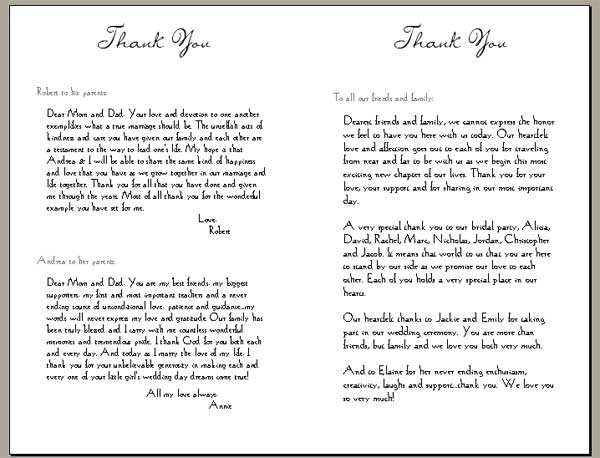 Thank You
Robert to his parents:
Dear Mom and Dad. Your love and devotion to one another
exemplifies what a true marriage should be. The unselfish acts of
kindness and care you have given our family and each other are
a testament to the way to lead one's life. My hope is that
Andrea & I will be able to share the same kind of happiness
and love that you have as we grow together in our marriage and
life together. Thank you for all that you have done and given
me through the years. Most of all thank you for the wonderful
example you have set for me.
Love.
Robert
Andrea to her parents:
Dear Mom and Dad. You are my best friends. my biggest
supporters. my first and most important teachers and a never
ending source of unconditional love. patience and guidance...my
words will never express my love and gratitude. Our family has
been truly blessed. and I carry with me countless wonderful
memories and tremendous pride. I thank God for you both each
and every day. And today as I marry the love of my life. I
thank you for your unbelievable generosity in making each and
every one of your little girl's wedding day dreams come true!
All my love always.
Annie
Thank You
To all our friends and family:
Dearest friends and family, we cannot express the honor
we feel to have you here with us today. Our heartfelt
love and affection goes out to each of you for traveling
from near and far to be with us as we begin this most
exciting new chapter of our lives. Thank you for your
love, your support and for sharing in our most important
day.
A very special thank you to our bridal party, Alicia,
David, Rachel, Marc, Nicholas, Jordan, Christopher
and Jacob. It means that world to us that you are here
to stand by our side as we promise our love to each
other. Each of you holds a very special place in our
hearts.
Our heartfelt thanks to Jackie and Emily for taking
part in our wedding ceremony. You are more than
friends, but family and we love you both very much.
And to Elaine for her never ending enthusiasm,
creativity, laughs and support...thank you. We love you
so very much!